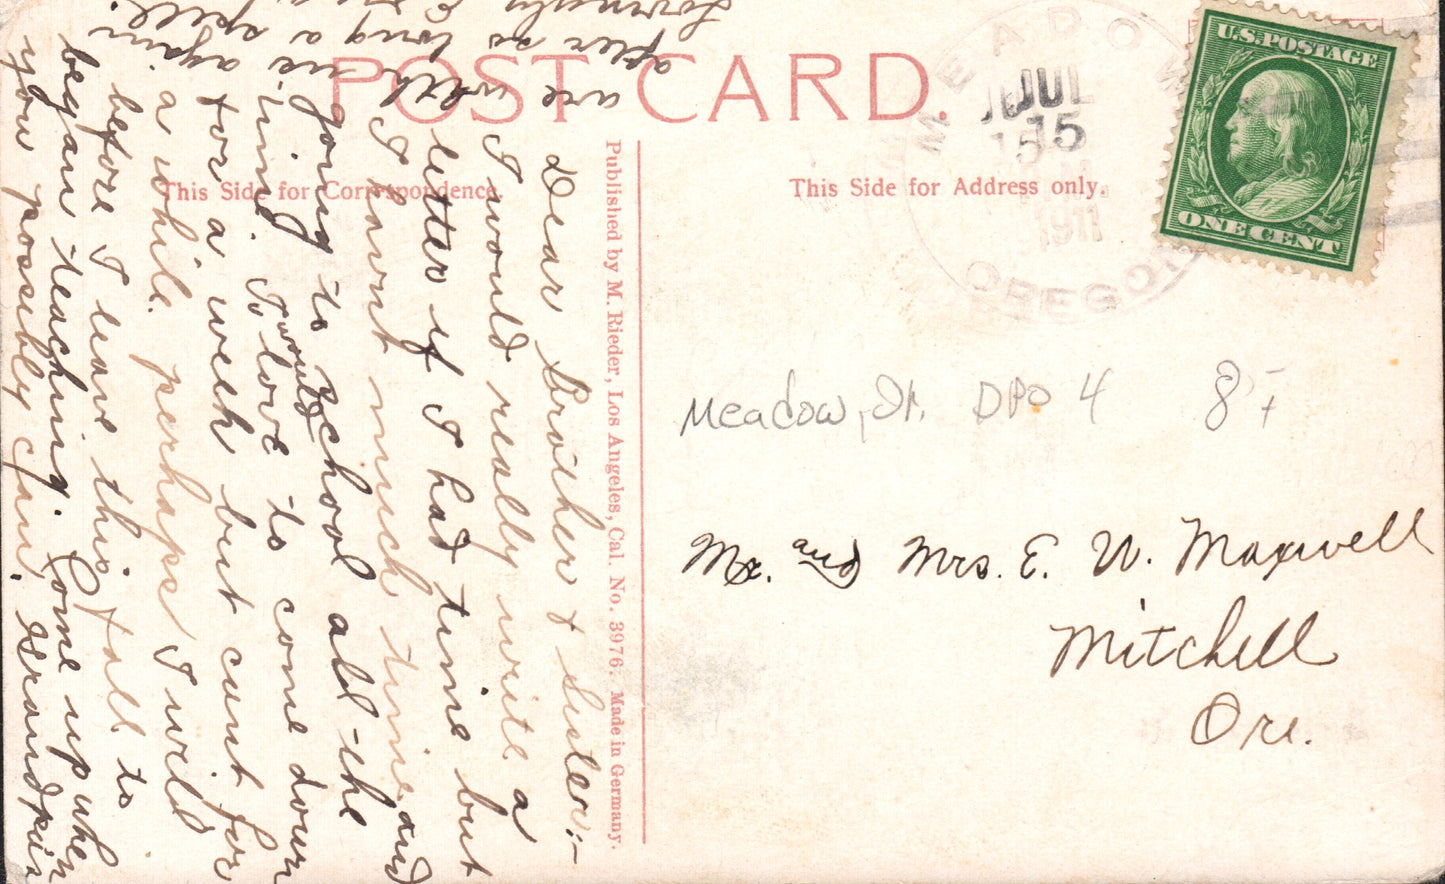 POST CARD.
This Side for Correspondence.
This Side for Address only.
U.S. POSTAGE
ONE CENT
MEADOW
JUL
15
1911
OREGON
Meadow, Or. DPO 4 85
Mr. and Mrs. E. W. Maxwell
Mitchell
Ore.
Published by M. Rieder, Los Angeles, Cal. No. 3976. Made in Germany.
Dear Brother & Sister:-
I would really write a
letter if I had time but
I havnt much time and
going to school all-the
-time. I would love to come down
for a week but cant for
a while. perhaps I will
before I leave this fall to
began teaching. Come up when
you possibly can. Grandpa is
are with us again
after so long a spell.
Lovingly